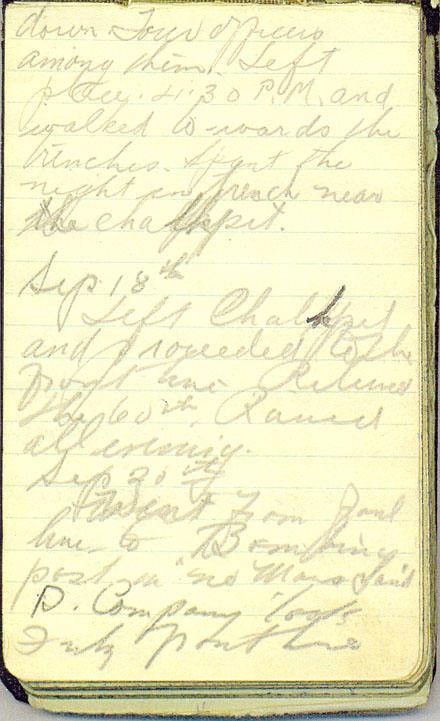 down Four officers
among them. Left
place. 4.30 P.M. and
walked to wards the
trenches. Spent the
night in trench near
the chalkpit.
Sep. 18th
Left Chalkpit
and proceeded to the
front line Relieved
the 60th. Rained
all evening.
Sep 30th
Went from front
line to Bombing
post in "no Mans Land
D. Company
front line